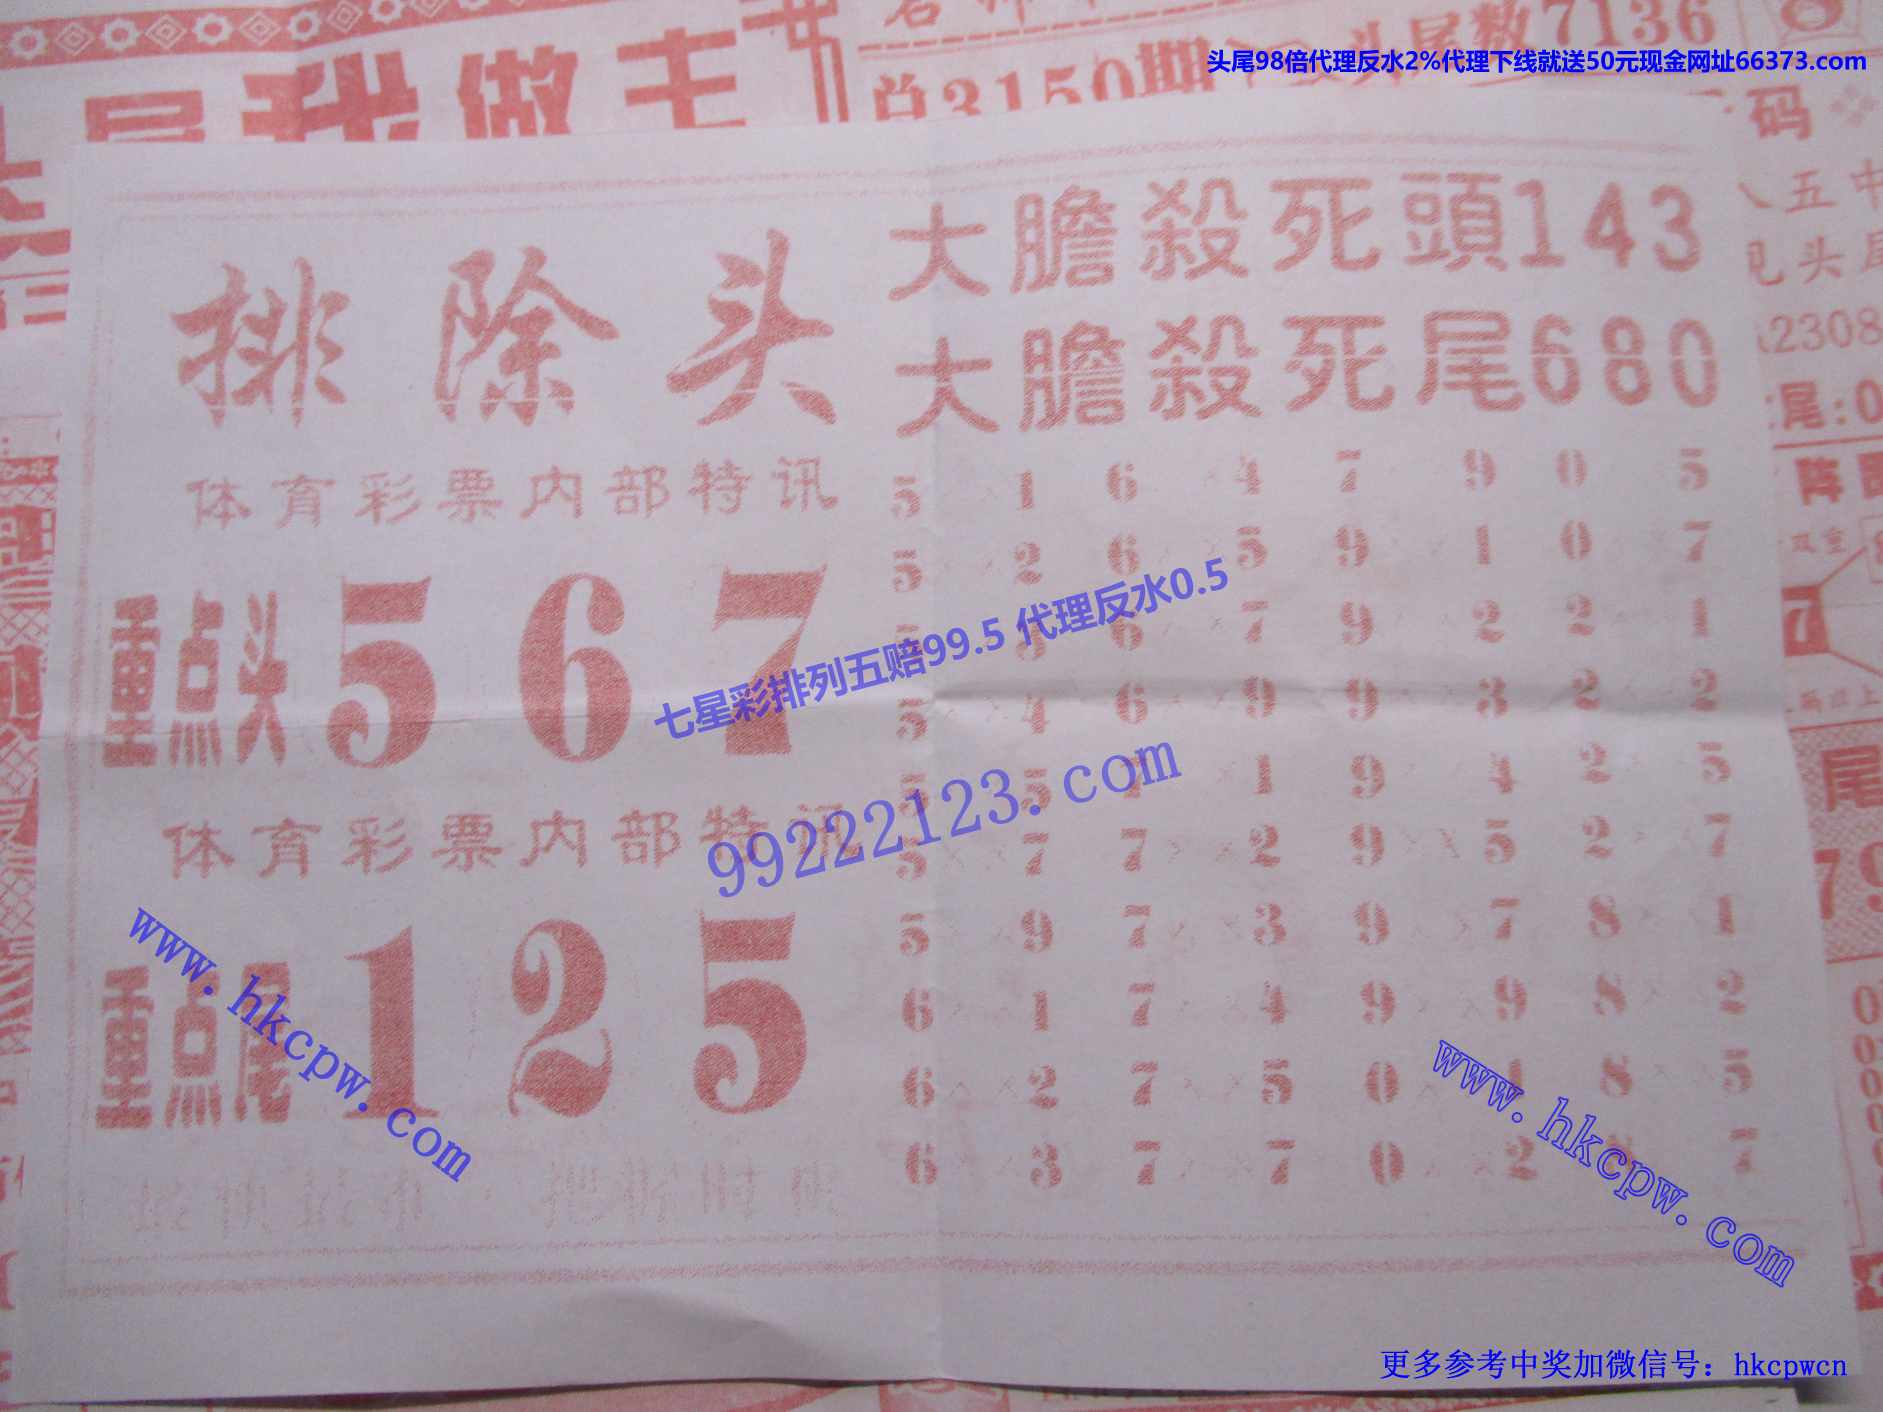 头尾98倍代理反水2%代理下线就送50元现金网址66373.com
我做主
总3150期
头尾数7136
码
八五中
见头尾
2308
尾:0
阵
排除头
大膽殺死頭143
大膽殺死尾680
体育彩票内部特讯
重点头567
体育彩票内部特讯
重点尾125
5 1 6 4 7 9 0 5
5 2 6 5 9 1 0 7
5 3 6 7 9 2 2 1
5 4 6 9 9 3 2 2
5 5 7 1 9 4 2 5
5 7 7 2 9 5 2 7
5 9 7 3 9 7 8 1
6 1 7 4 9 9 8 2
6 2 7 5 0 1 8 5
6 3 7 7 0 2 7
七星彩排列五赔99.5 代理反水0.5
99222123.com
www.hkcpw.com
www.hkcpw.com
尾
79
更多参考中奖加微信号：hkcpwcn